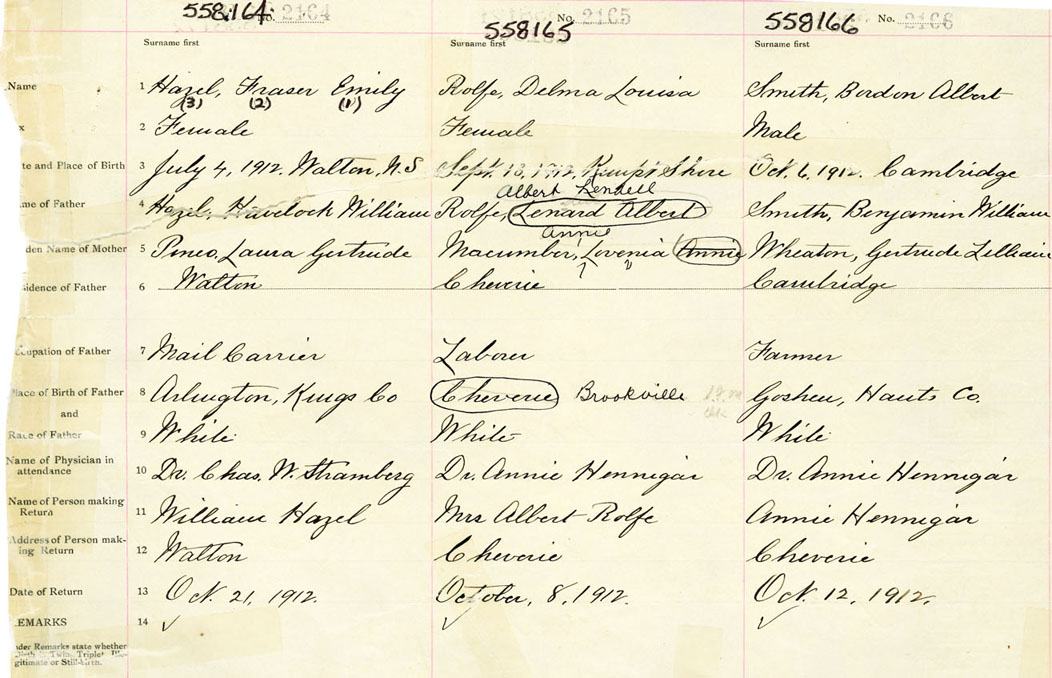 558164 No. 2164 558165 No. 2165 558166 No. 2166
Surname first Surname first Surname first
Name 1 Hazel, Fraser Emily Rolfe, Delma Louisa Smith, Bordon Albert
(3) (2) (1)
x 2 Female Female Male
te and Place of Birth 3 July 4, 1912. Walton, N.S Sept. 13, 1912, Kempt Shore Oct. 6, 1912. Cambridge
Albert Lendell
me of Father 4 Hazel, Havelock William Rolfe, Lenard Albert Smith, Benjamin William
Annie
den Name of Mother 5 Pineo, Laura Gertrude Macumber, Lovenia Annie Wheaton, Gertrude Lillian
sidence of Father 6 Walton Cheverie Cambridge
ccupation of Father 7 Mail Carrier Laborer Farmer
lace of Birth of Father 8 Arlington, Kings Co Cheverie Brookville Goshen, Hants Co.
and
Race of Father 9 White White White
Name of Physician in attendance 10 Dr. Chas. W. Stramberg Dr. Annie Hennigar Dr. Annie Hennigar
Name of Person making Return 11 William Hazel Mrs Albert Rolfe Annie Hennigar
Address of Person making Return 12 Walton Cheverie Cheverie
Date of Return 13 Oct. 21, 1912. October, 8, 1912. Oct. 12, 1912.
EMARKS 14 ✓ ✓ ✓
nder Remarks state whether
Birth is Twin, Triplet, Ille-
gitimate or Still-birth.